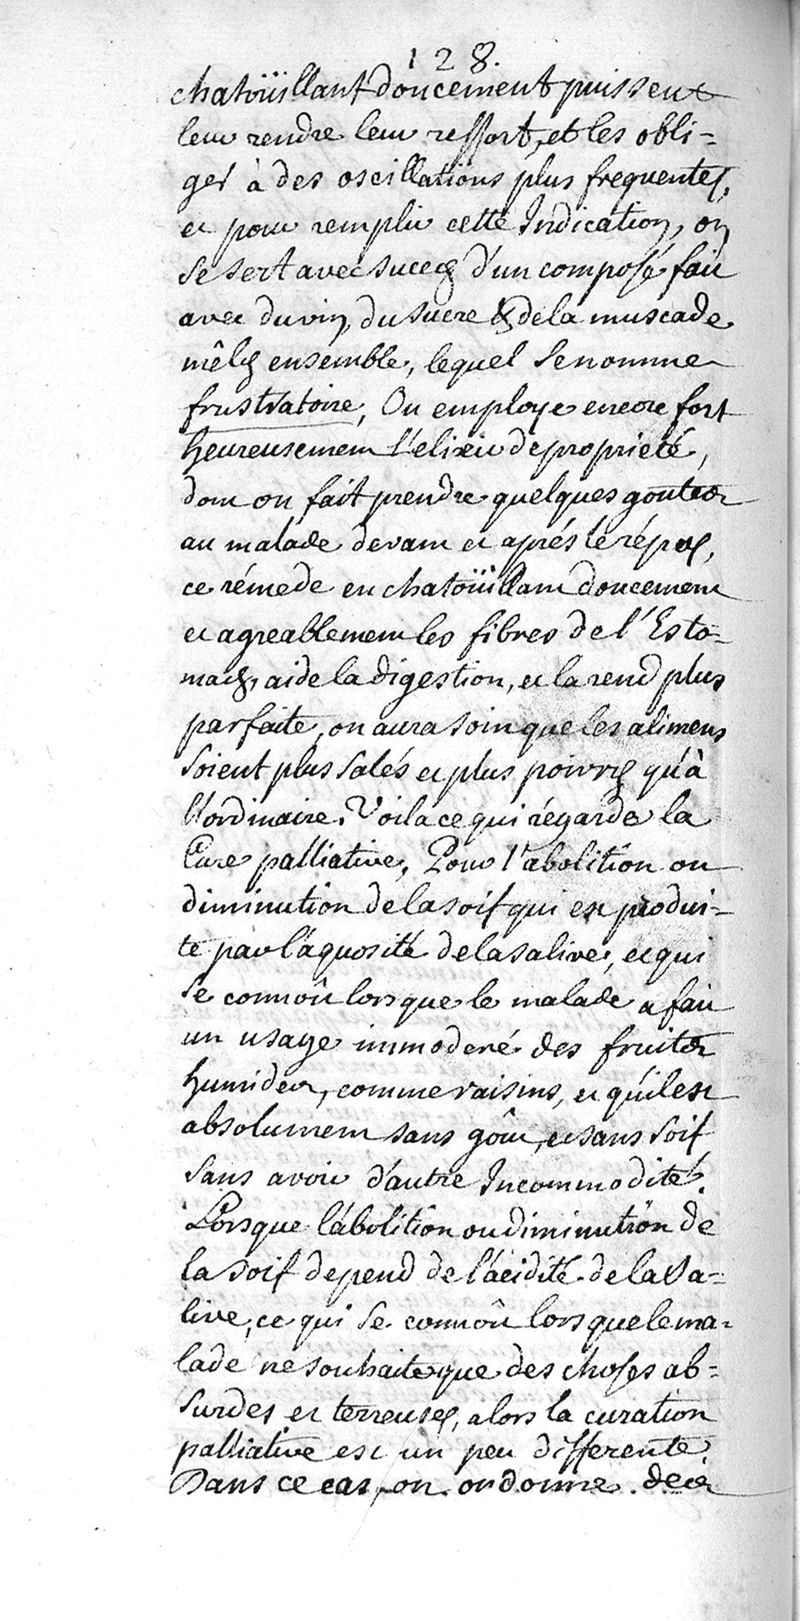 128.
chatoüillant doucement puissent
leur rendre leur ressort, et les obli=
ger à des oscillations plus frequentes,
et pour remplir cette Indication, on
se sert avec succes d'un composé fait
avec du vin, du sucre & de la muscade
mêlés ensemble, lequel se nomme
frustratoire, On employe encore fort
heureusement l'elixir de proprieté,
dont on fait prendre quelques gouttes
au malade devant et aprés le répas,
ce rémede en chatoüillant doucement
et agreablement les fibres de l'Esto=
mach, aide la digestion, et la rend plus
parfaite, on aura soin que les alimens
soient plus salés et plus poivrés qu'à
l'ordinaire. Voila ce qui régarde la
Cure palliative, Pour l'abolition ou
diminution de la soif qui est produi=
te par l'aquosité de la salive, et qui
se connoît lorsque le malade a fait
un usage immoderé des fruits
humides, comme raisins, et qu'il est
absolument sans goût, et sans soif
sans avoir d'autre Incommodité.
Lorsque l'abolition ou diminution de
la soif depend de l'acidité de la Sa=
live, ce qui se connoît lorsque le ma=
lade ne souhaite que des choses ab=
surdes et terreuses, alors la curation
palliative est un peu differente.
Dans ce cas on ordonne des